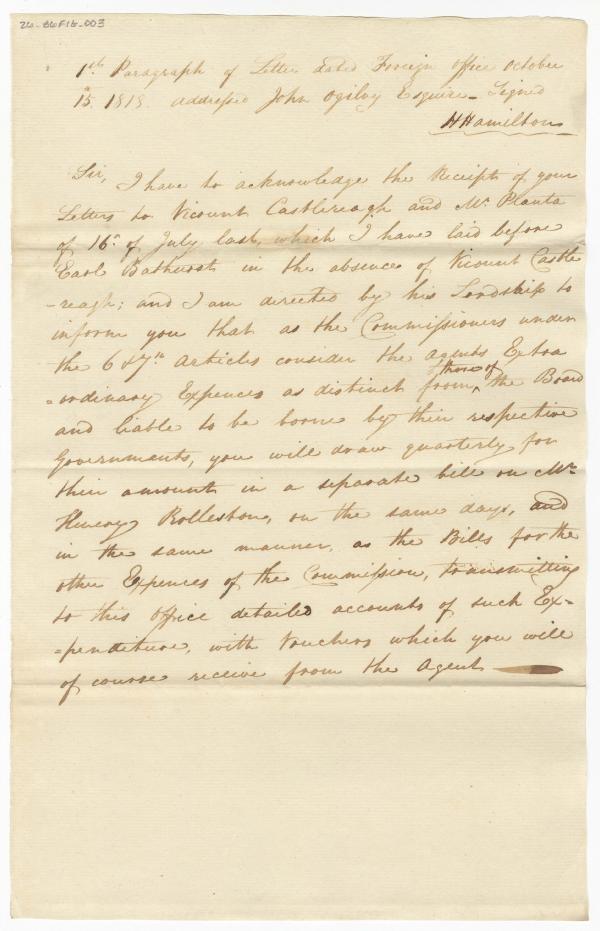 26-B6F16-003
1st Paragraph of Letter dated Foreign Office October
15th 1818 addressed John Ogilvy Esquire - Signed
HHamilton
Sir, I have to acknowledge the Receipt of your
Letters to Vicount Castlereagh and Mr Planta
of 16th of July last, which I have laid before
Earl Bathurst in the absence of Vicount Castle
-reagh; and I am directed by his Lordship to
inform you that as the Commissioners under
the 6 & 7th Articles consider the agents Extra
=ordinary Expences as distinct from ^those of the Board
and liable to be borne by their respective
Governments, you will draw quarterly for
their amount in a separate bill on Mr
Henery Rolleston, on the same days, and
in the same manner, as the Bills for the
other Expences of the Commission, transmitting
to this office detailed accounts of such Ex=
=penditure, with Vouchers which you will
of course receive from the Agent